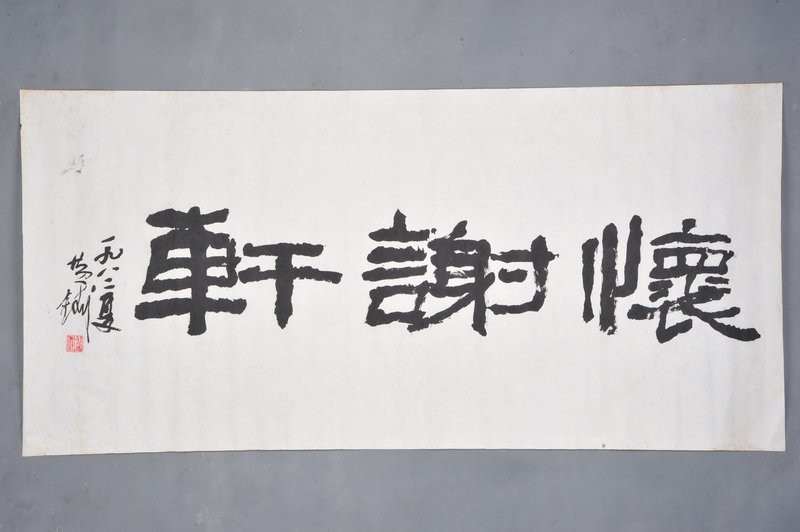 懷謝軒
一九八二夏